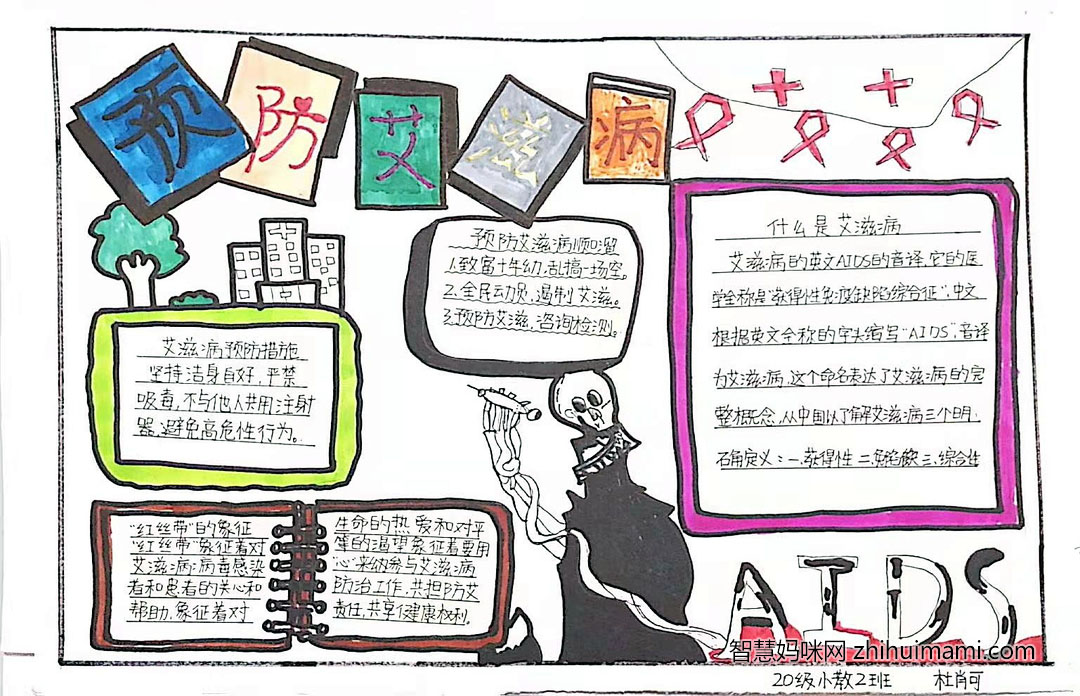 预防艾滋病
什么是艾滋病
艾滋病的英文AIDS的音译,它的医
学全称是"获得性免疫缺陷综合征",中文
根据英文全称的字头缩写"AIDS",音译
为艾滋病,这个命名表达了艾滋病的完
整概念,从中国以了解艾滋病三个明
石角定义:一、获得性 二、免陷缺 三、综合性
预防艾滋病顺溜
1.致富十年幼,乱搞一场空。
2.全民动员,遏制艾滋。
3.预防艾滋,咨询检测。
艾滋病预防措施
坚持洁身自好,严禁
吸毒,不与他人共用注射
器,避免高危性行为。
"红丝带"的象征
"红丝带"象征着对
艾滋病:病毒感染
者和患者的关心和
帮助,象征着对
生命的热爱和对平
等的渴望,象征着要用
心来纳参与艾滋病
防治工作,共担防艾
责任,共享健康权利。
AIDS
智慧妈咪网 zhihuimami.com
20级小教2班 杜肖可